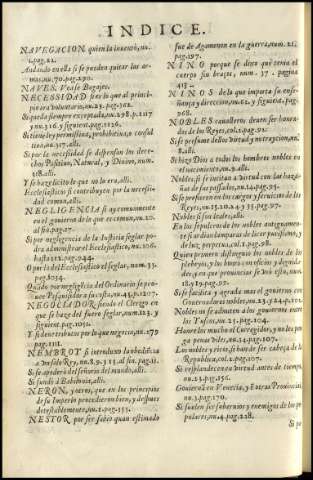 INDICE.
NAVEGACION quien la inuentò, nu.
1. pag. 22.
Andando en ella si se pueden quitar las ar-
mas, nu. 70. pag. 290.
NAVES. Vease Bagajes.
NECESSIDAD si es lo que al princi-
pio era voluntario, nu. 23. pag. 302.
Si pueda siempre exceptada, nu. 298. p. 1117
y nu. 316. y siguiente, pag. 1126.
Si tiene ley permissiua, prohibitiua, o consul
tiua, nu. 317. alli.
Si por la necessidad se dispensan los dere-
chos Positiuo, Natural, y Diuino, num.
318. alli.
Y si haze licito lo que no lo era, alli.
Ecclesiasticos si contribuyen por la necessi-
dad comun, alli.
NEGLIGENCIA si ay comunmente
en el gouierno de lo que es comun, nu. 20.
al fin, pag. 17.
Si por negligencia de la Iusticia seglar po-
dra administrar el Ecclesiastico, nu. 206.
hasta 212. pag. 944.
O por la del Ecclesiastico el seglar, num. 33.
pag. 1034.
Quando por negligẽcia del Ordinario se pro-
uee Pesquisidor a su costa, nu. 45. p. 1207.
NEGOCIADOR siendo el Clerigo en
que se haze del fuero seglar, num. 123. y
siguient. pag. 1051.
Y si de los tributos por lo que negocia, nu. 279
pag. 1111.
NEMBROT si introduxo la obediẽcia
a vn solo Rey, nu. 8. 9. y 11. al fin, pag. 11.
Si se apoderò del señorio del mundo, alli.
Si fundò a Babilonia, alli.
NERON, yerro, que en los principios
de su Imperio procedieron bien, y despues
detestablemente, nu. 2. pag. 153.
NESTOR por ser sabio quan estimado
fue de Agamenon en la guerra, num. 21.
pag. 197.
NINO porque se dize que tenia el
cuerpo sin braços, num. 37. pagina
413.
NIÑOS de lo que importa su ense-
ñança y direccion, nu. 62. y siguiente, pag.
968.
NOBLES, caualleros deuen ser honra-
dos de los Reyes, col. 2. pag. 91.
Si se presume dellos virtud y no traicion, nu.
8. alli.
Si hizo Dios a todos los hombres nobles en
el nacimiento, nu. 9. alli.
Nobles, si se incitan a virtud con las haza-
ñas de sus passados, nu. 14. pag. 95.
Si se prefieren en los cargos y seruicio de los
Reyes, nu. 15. 20. 24. y 53. y siguient. pag. 97.
Nobles si son leales, alli.
En los sepulcros de los nobles antiguamen-
te si auia lumbraras de lucir purissimo, y
de luz, perpetua, col. 2. pag. 98.
Quien primero distinguio los nobles de los
plebeyos, y los honrò con oficios y dignida-
des; y en que prouincias se vsò esto, num.
18. y 19. pag. 97.
Si se facilita y agrada mas el gouierno con
Gouernadores nobles, nu. 23. y 24. p. 101.
Nobles no se admiten a los gouiernos entre
los Tusos, nu. 25. pag. 104.
Honre los mucho el Corregidor, y no los pon-
ga penas viles, nu. 24. pag. 107.
Los nobles y ricos, si deuen ser cabeça de la
Republica, col. 2. pag. 107.
Si resplandece mas virtud antes de tiempo,
nu. 23. pag. 156.
Gouiernos en Venecia, y Estras Prouincias
nu. 3. pag. 170.
Si suelen ser soberuios y enemigos de los po
pulares, nu. 4. pag. 228.
Si po